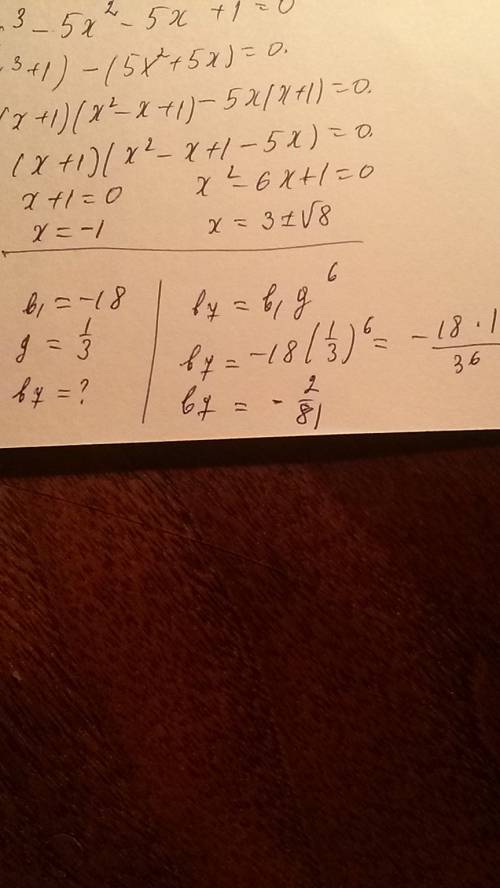 ³ - 5x² - 5x + 1 = 0
³ + 1) - (5x² + 5x) = 0.
(x+1)(x² - x + 1) - 5x(x+1) = 0.
(x+1)(x² - x + 1 - 5x) = 0.
x + 1 = 0 x² - 6x + 1 = 0
x = -1 x = 3 ± √8
b₁ = -18 b₇ = b₁ g⁶
g = 1/3 b₇ = -18(1/3)⁶ = - 18 · 1 / 3⁶
b₇ = ? b₇ = - 2/81